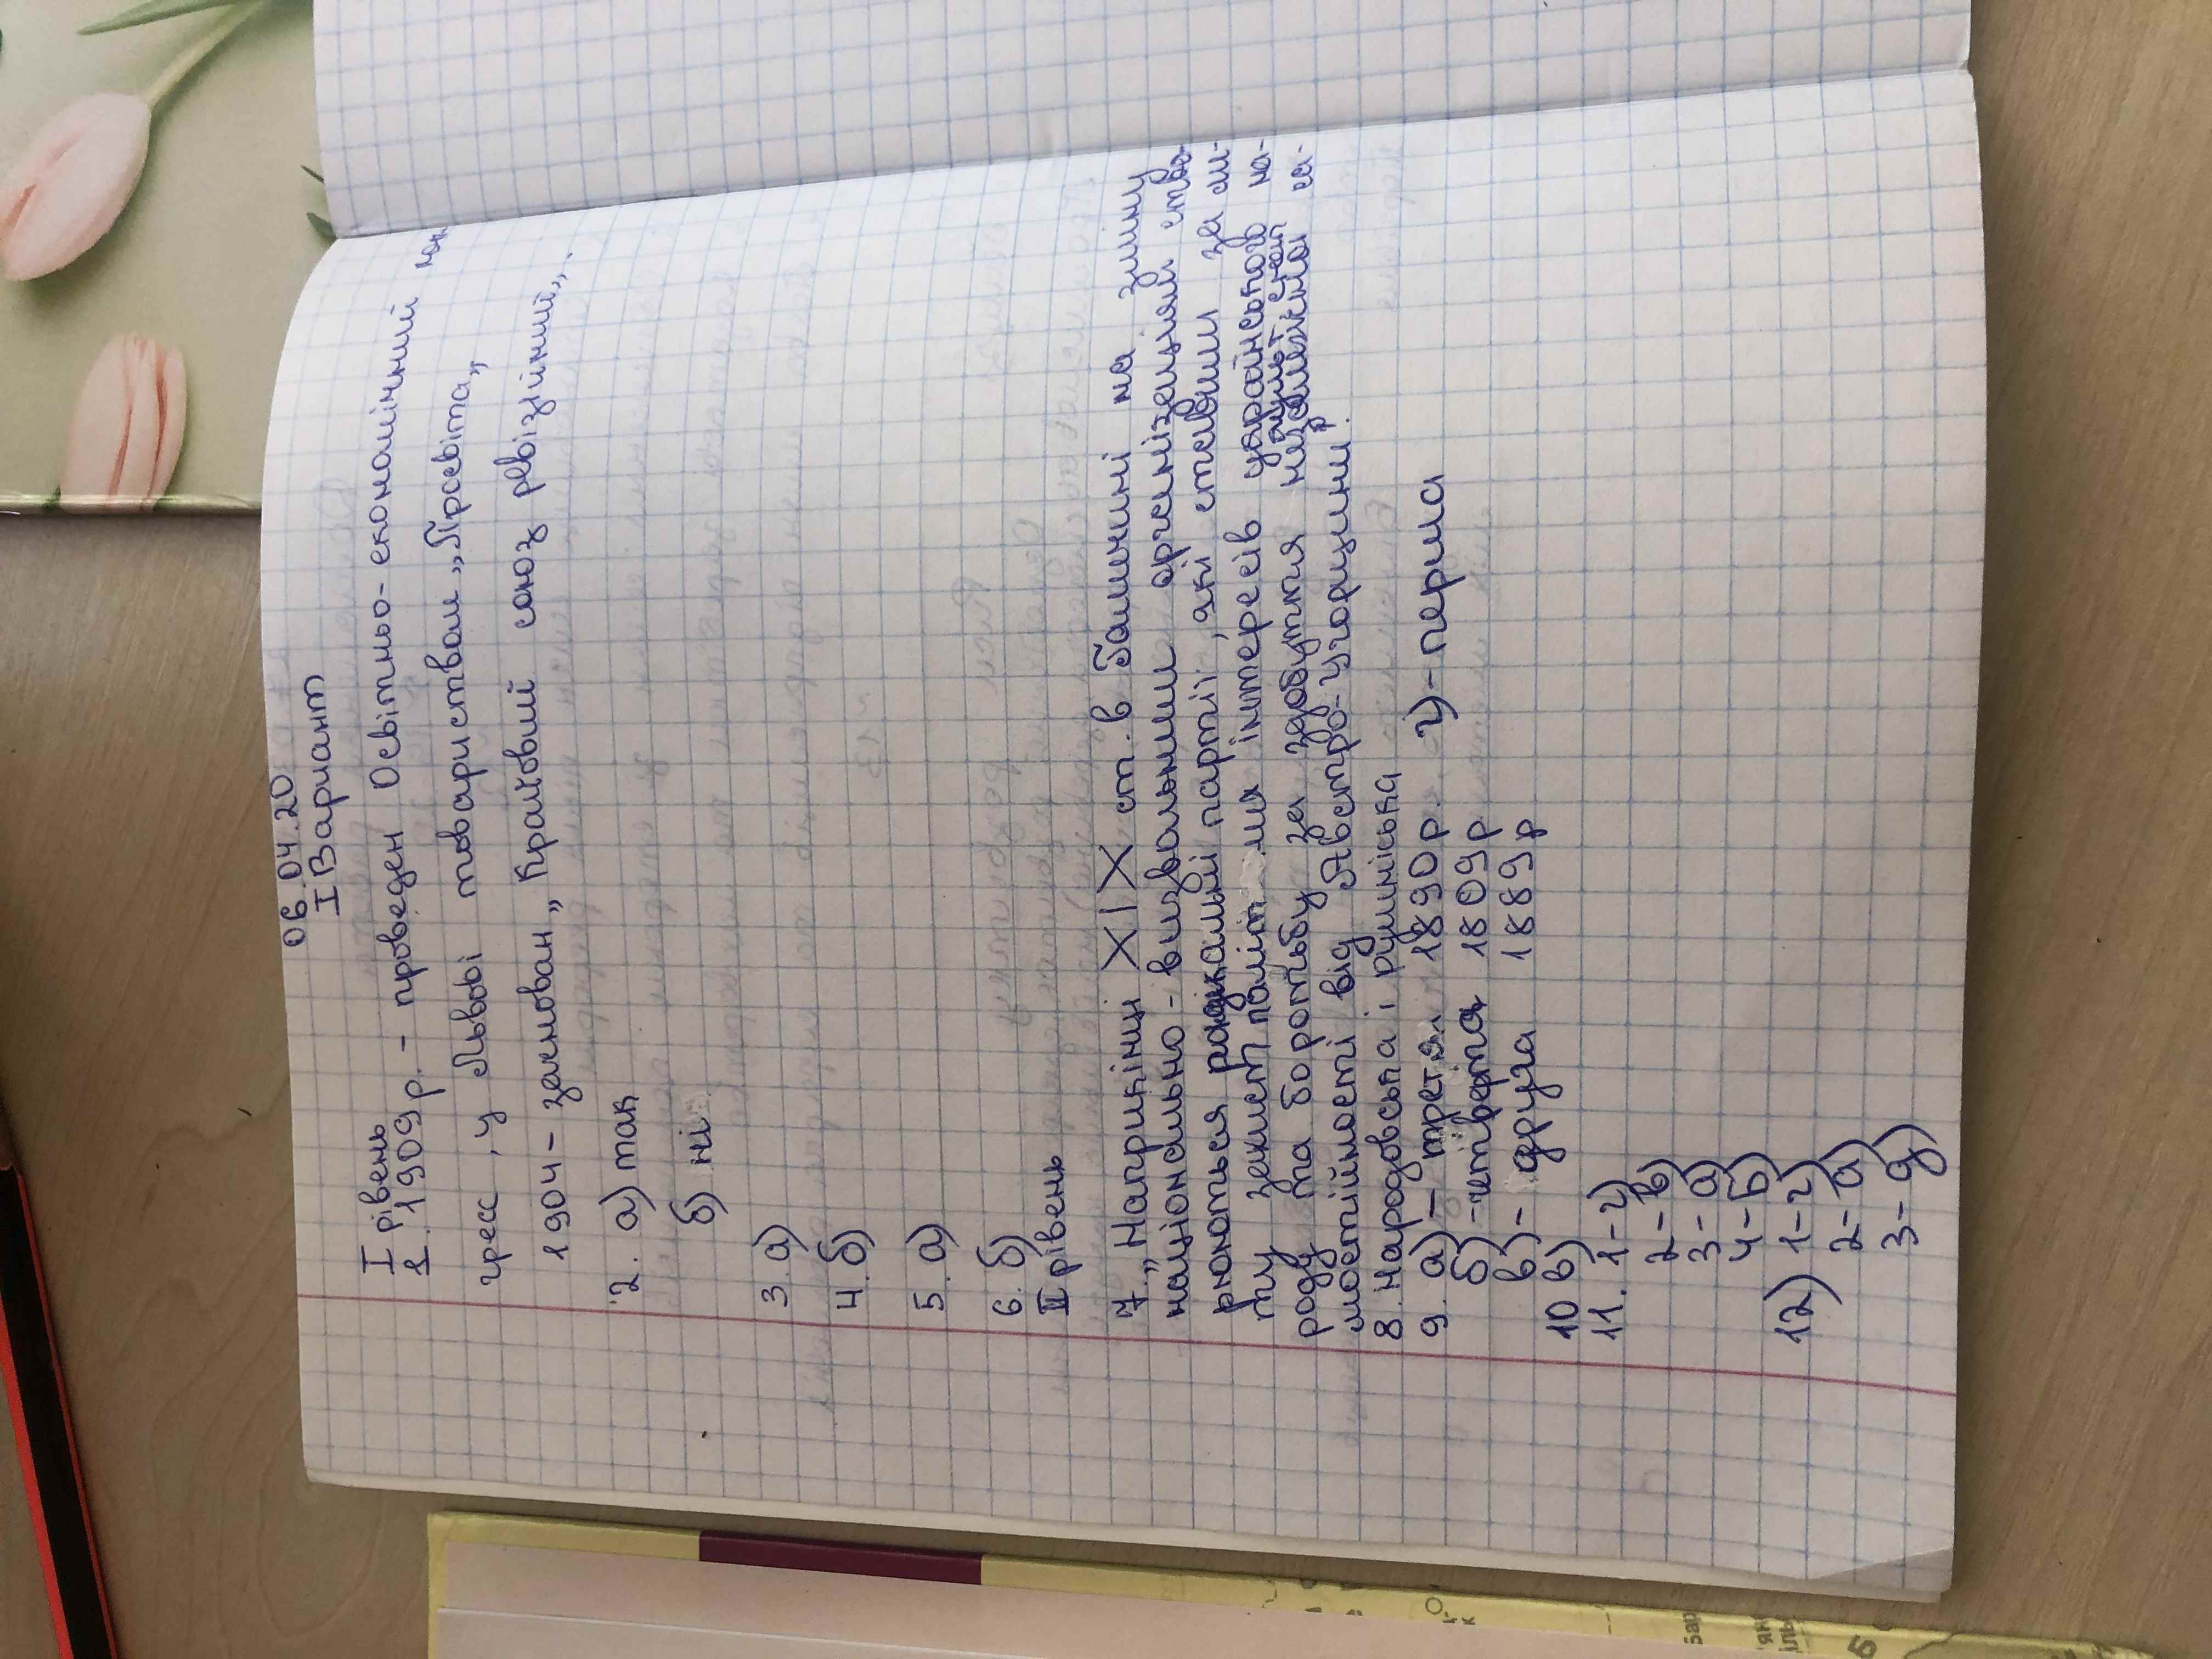 06.04.20
I Вариант
I рівень
1. 1909 р. - проведен Освітньо-економічний кон
гресс, у Львові товариством „Просвіта„
1904 - заснован „Крайовий союз ревізійний„.
2. а) так
б) ні
3. а)
4. б)
5. а)
6. б)
II рівень
7. „Наприкінці XIX ст. в Галичині на зміну
національно-визвольними організаціям ство-
рюються радикальні партії, які ставили за ме-
ту захист політ. інтересів українського на-
роду та боротьбу за здобуття незалежної са-
мостійності від Австро-Угорщини.
8. Народовська і румінська
9. а) - третя 1890 р. г) - перша
б) - четверта 1809 р
в) - друга 1889 р
10 в)
11. 1-г)
2-в)
3-а)
4-б)
12) 1-г)
2-а)
3-д)